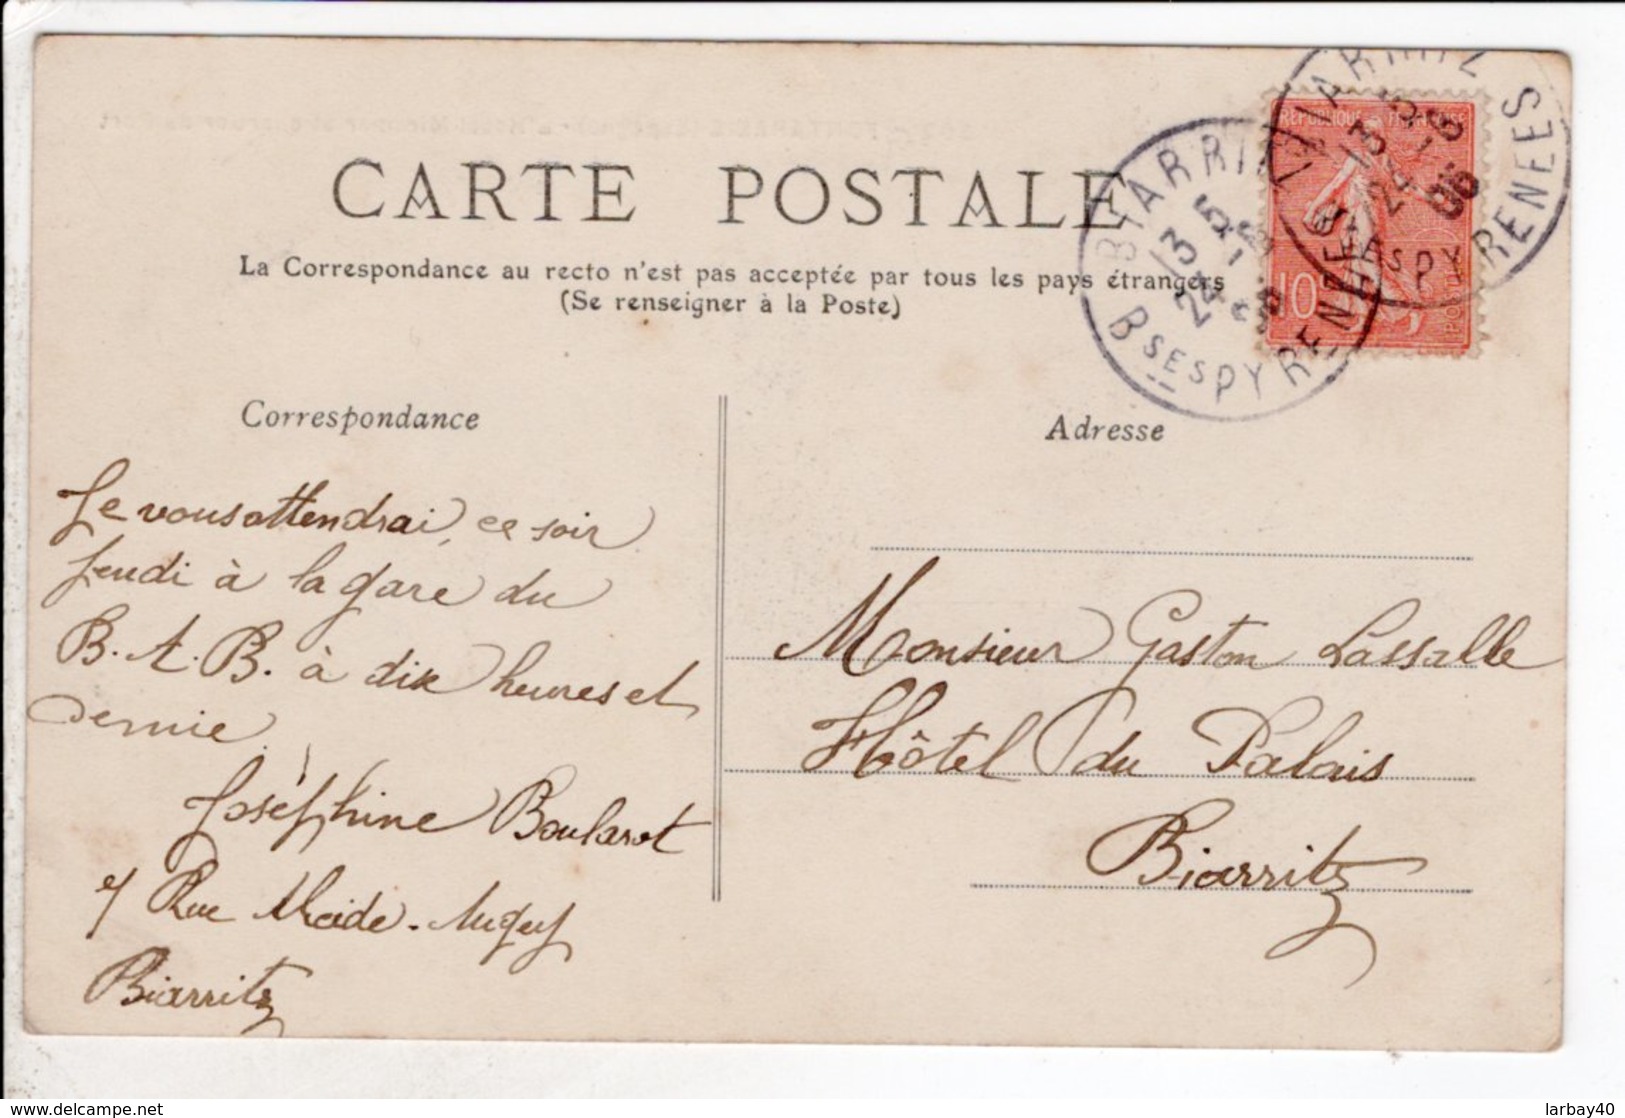 CARTE POSTALE
La Correspondance au recto n'est pas acceptée par tous les pays étrangers
(Se renseigner à la Poste)
BIARRITZ
13 5
24 -5
BSES PYRENEES
BIARRITZ
13 5
24 -5
06
BSES PYRENEES
REPUBLIQUE FRANÇAISE
10
POSTES
Correspondance
Adresse
Je vous attendrai, ce soir
Jeudi à la gare du
B. A. B. à dix heures et
demie.
Joséphine Boularot
Rue
Biarritz
Monsieur Gaston Lassalle
Hôtel du Palais
Biarritz
delcampe.net
larbay40